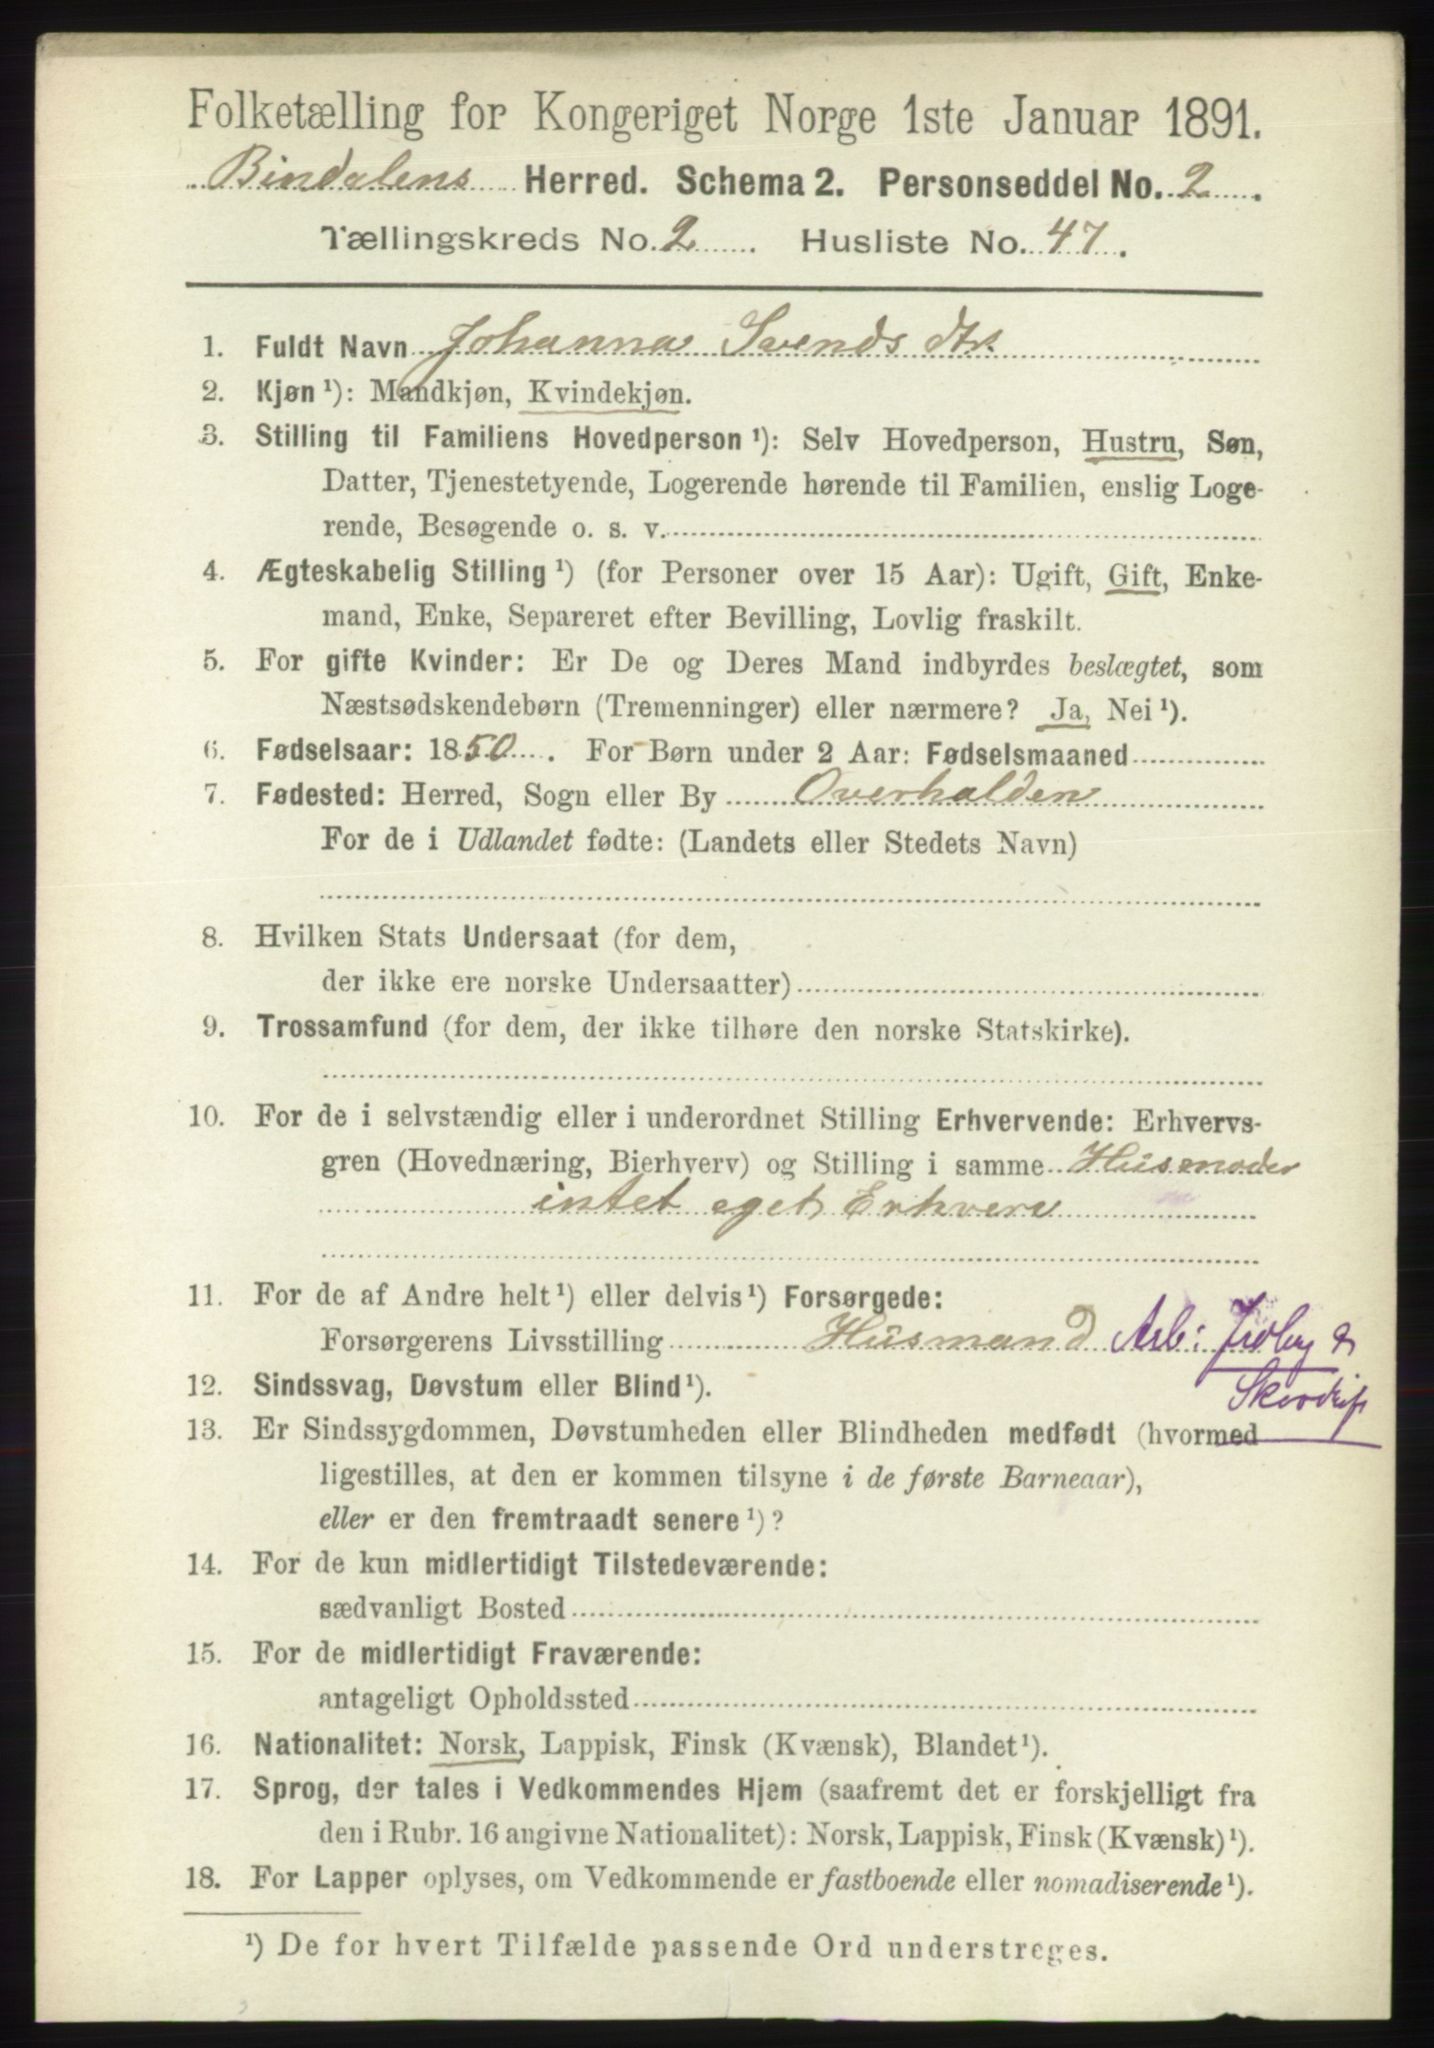 Folketælling for Kongeriget Norge 1ste Januar 1891.
Bindalens Herred. Schema 2. Personseddel No. 2.
Tællingskreds No. 2. Husliste No. 47.
1. Fuldt Navn Johanna Svends dtr.
2. Kjøn ¹): Mandkjøn, Kvindekjøn.
3. Stilling til Familiens Hovedperson ¹): Selv Hovedperson, Hustru, Søn,
Datter, Tjenestetyende, Logerende hørende til Familien, enslig Loge-
rende, Besøgende o. s. v.
4. Ægteskabelig Stilling ¹) (for Personer over 15 Aar): Ugift, Gift, Enke-
mand, Enke, Separeret efter Bevilling, Lovlig fraskilt.
5. For gifte Kvinder: Er De og Deres Mand indbyrdes beslægtet, som
Næstsødskendebørn (Tremenninger) eller nærmere? Ja, Nei ¹).
6. Fødselsaar: 1850. For Børn under 2 Aar: Fødselsmaaned
7. Fødested: Herred, Sogn eller By Overhalden
For de i Udlandet fødte: (Landets eller Stedets Navn)
8. Hvilken Stats Undersaat (for dem,
der ikke ere norske Undersaatter)
9. Trossamfund (for dem, der ikke tilhøre den norske Statskirke).
10. For de i selvstændig eller i underordnet Stilling Erhvervende: Erhvervs-
gren (Hovednæring, Bierhverv) og Stilling i samme Husmoder
intet eget Erhverv
11. For de af Andre helt ¹) eller delvis ¹) Forsørgede:
Forsørgerens Livsstilling Husmand Arb: Jrdbg &
Skovdrift
12. Sindssvag, Døvstum eller Blind ¹).
13. Er Sindssygdommen, Døvstumheden eller Blindheden medfødt (hvormed
ligestilles, at den er kommen tilsyne i de første Barneaar),
eller er den fremtraadt senere ¹)?
14. For de kun midlertidigt Tilstedeværende:
sædvanligt Bosted
15. For de midlertidigt Fraværende:
antageligt Opholdssted
16. Nationalitet: Norsk, Lappisk, Finsk (Kvænsk), Blandet ¹).
17. Sprog, der tales i Vedkommendes Hjem (saafremt det er forskjelligt fra
den i Rubr. 16 angivne Nationalitet): Norsk, Lappisk, Finsk (Kvænsk) ¹).
18. For Lapper oplyses, om Vedkommende er fastboende eller nomadiserende ¹).
¹) De for hvert Tilfælde passende Ord understreges.